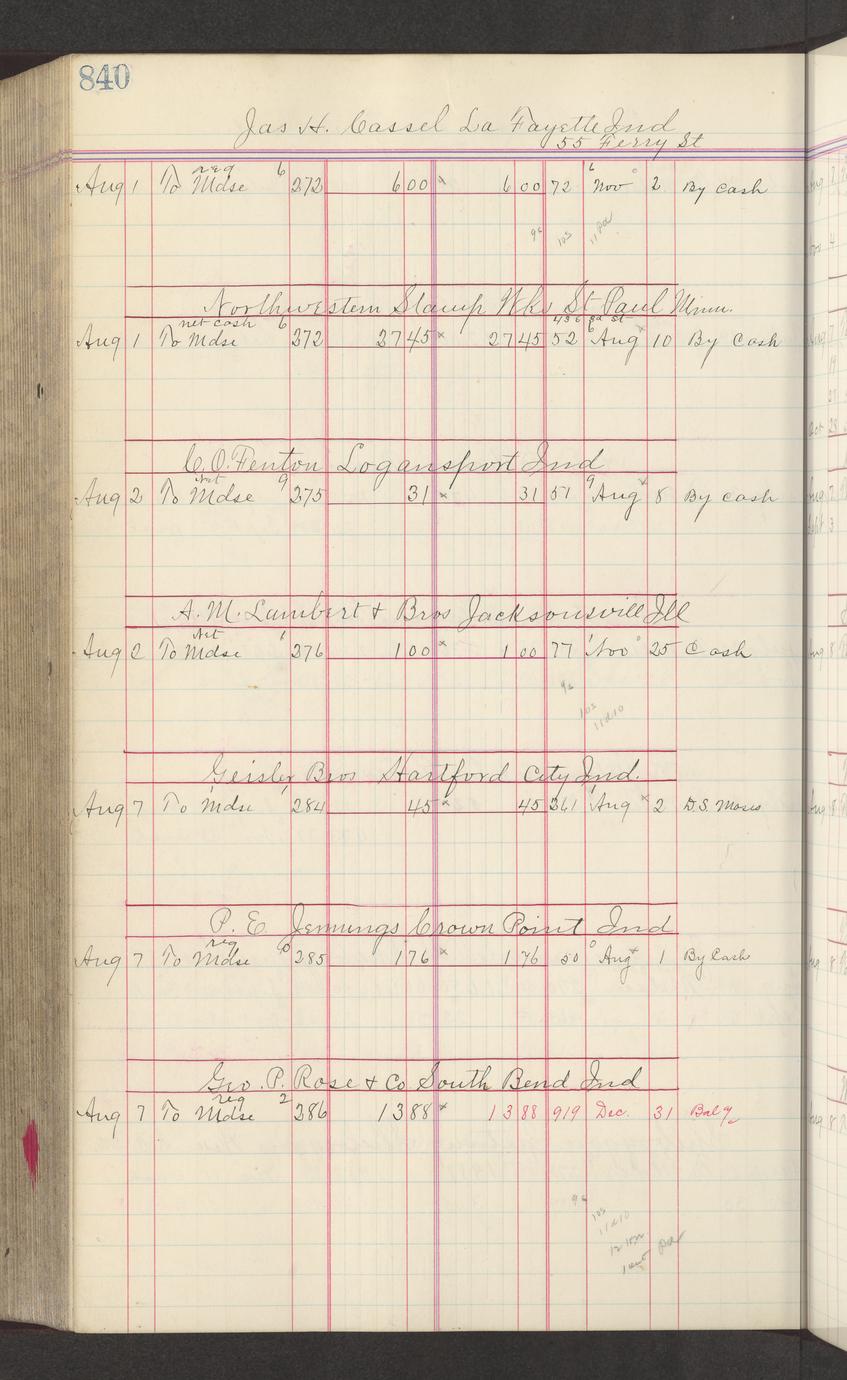 840
Jas H. Cassel La Fayette Ind
55 Ferry St
reg
Aug 1 To Mdse 6 272 6 00 x 6 00 72 6 Nov 2 By Cash
9c 10s 11 pd
Northwestern Stamp Wks St Paul Minn.
net cash
Aug 1 To Mdse 6 272 27 45 x 27 45 52 6 Aug x 10 By Cash
C. O. Fenton Logansport Ind
Net
Aug 2 To Mdse 9 275 31 x 31 51 9 Aug x 8 By Cash
A. M. Lambert & Bros Jacksonsvill Ill
Net
Aug 2 To Mdse 1 276 1 00 x 1 00 77 1 Nov 25 Cash
9c
10s
11d10
Geisler Bros Hartford City Ind.
Aug 7 To Mdse 1 284 45 x 45 361 1 Aug x 2 D.S. Moses
P. E. Jennings Crown Point Ind
reg
Aug 7 To Mdse 0 285 1 76 x 1 76 50 0 Aug x 1 By Cash
Geo. P. Rose & Co South Bend Ind
reg
Aug 7 To Mdse 2 286 13 88 x 13 88 919 Dec. 31 Bal
9c
10s
11d10
pd